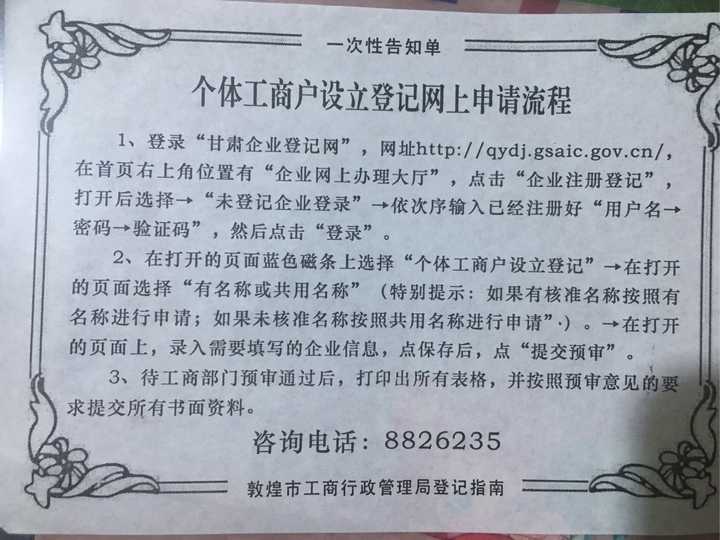 一次性告知单
个体工商户设立登记网上申请流程
1、登录“甘肃企业登记网”，网址http://qydj.gsaic.gov.cn/，
在首页右上角位置有“企业网上办理大厅”，点击“企业注册登记”，
打开后选择→“未登记企业登录”→依次序输入已经注册好“用户名→
密码→验证码”，然后点击“登录”。
2、在打开的页面蓝色磁条上选择“个体工商户设立登记”→在打开
的页面选择“有名称或共用名称”（特别提示：如果有核准名称按照有
名称进行申请；如果未核准名称按照共用名称进行申请”·）。→在打开
的页面上，录入需要填写的企业信息，点保存后，点“提交预审”。
3、待工商部门预审通过后，打印出所有表格，并按照预审意见的要
求提交所有书面资料。
咨询电话：8826235
敦煌市工商行政管理局登记指南